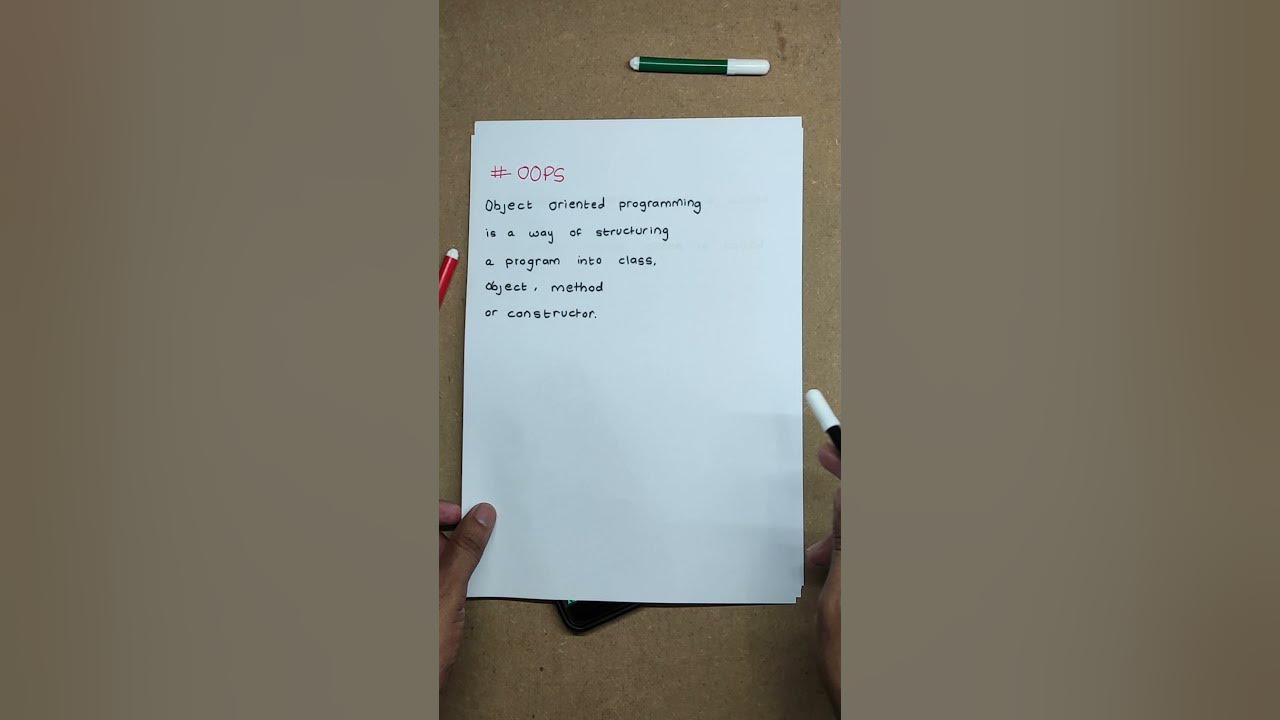 # OOPS
Object oriented programming
is a way of structuring
a program into class,
object, method
or constructor.